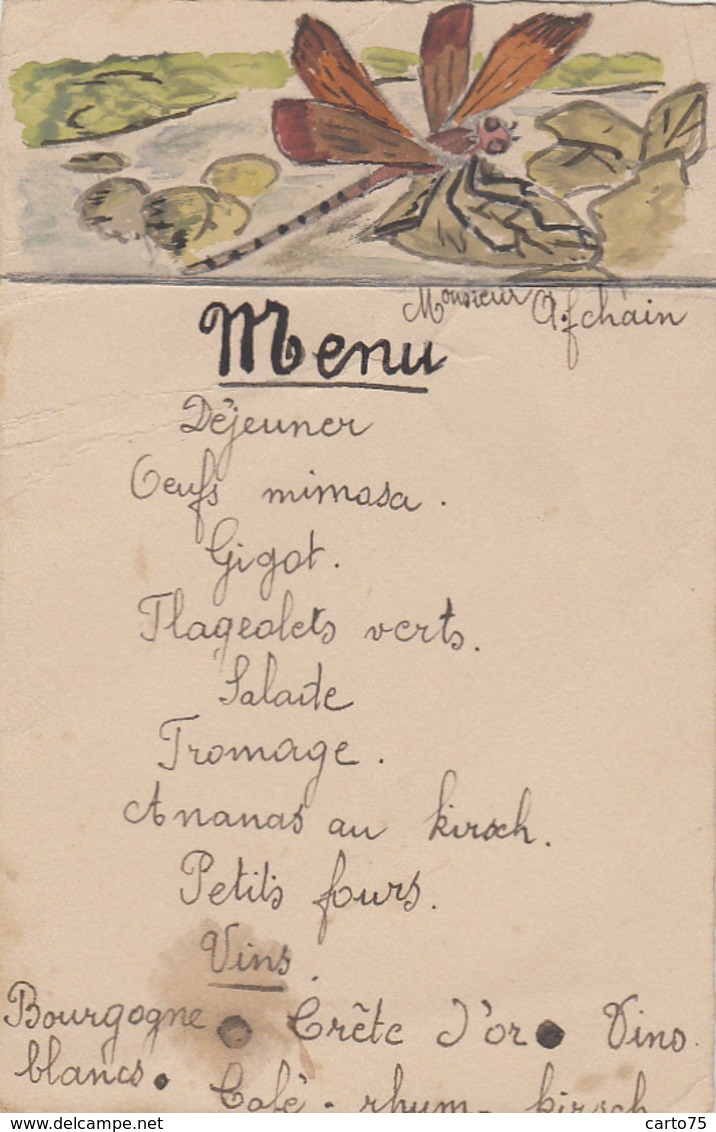 Monsieur Afchain
Menu
Déjeuner
Oeufs mimosa.
Gigot.
Flageolets verts.
Salade
Fromage.
Ananas au kirsch.
Petits fours.
Vins.
Bourgogne • Crête d'or • Vins
blancs. Café - rhum - kirsch
delcampe.net
carto75